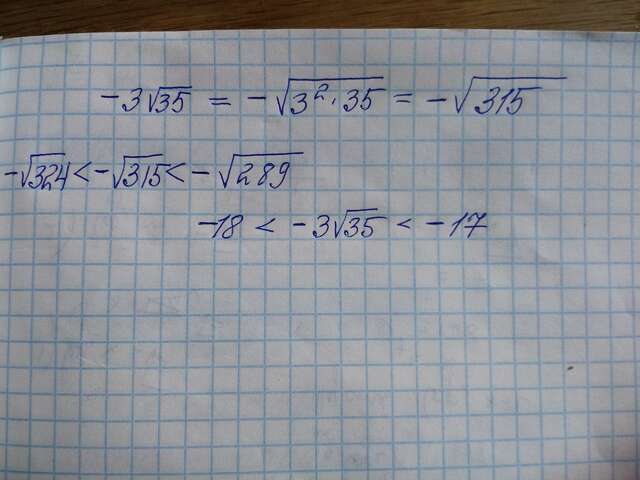 -3√35 = -√3²·35 = -√315
-√324 < -√315 < -√289
-18 < -3√35 < -17